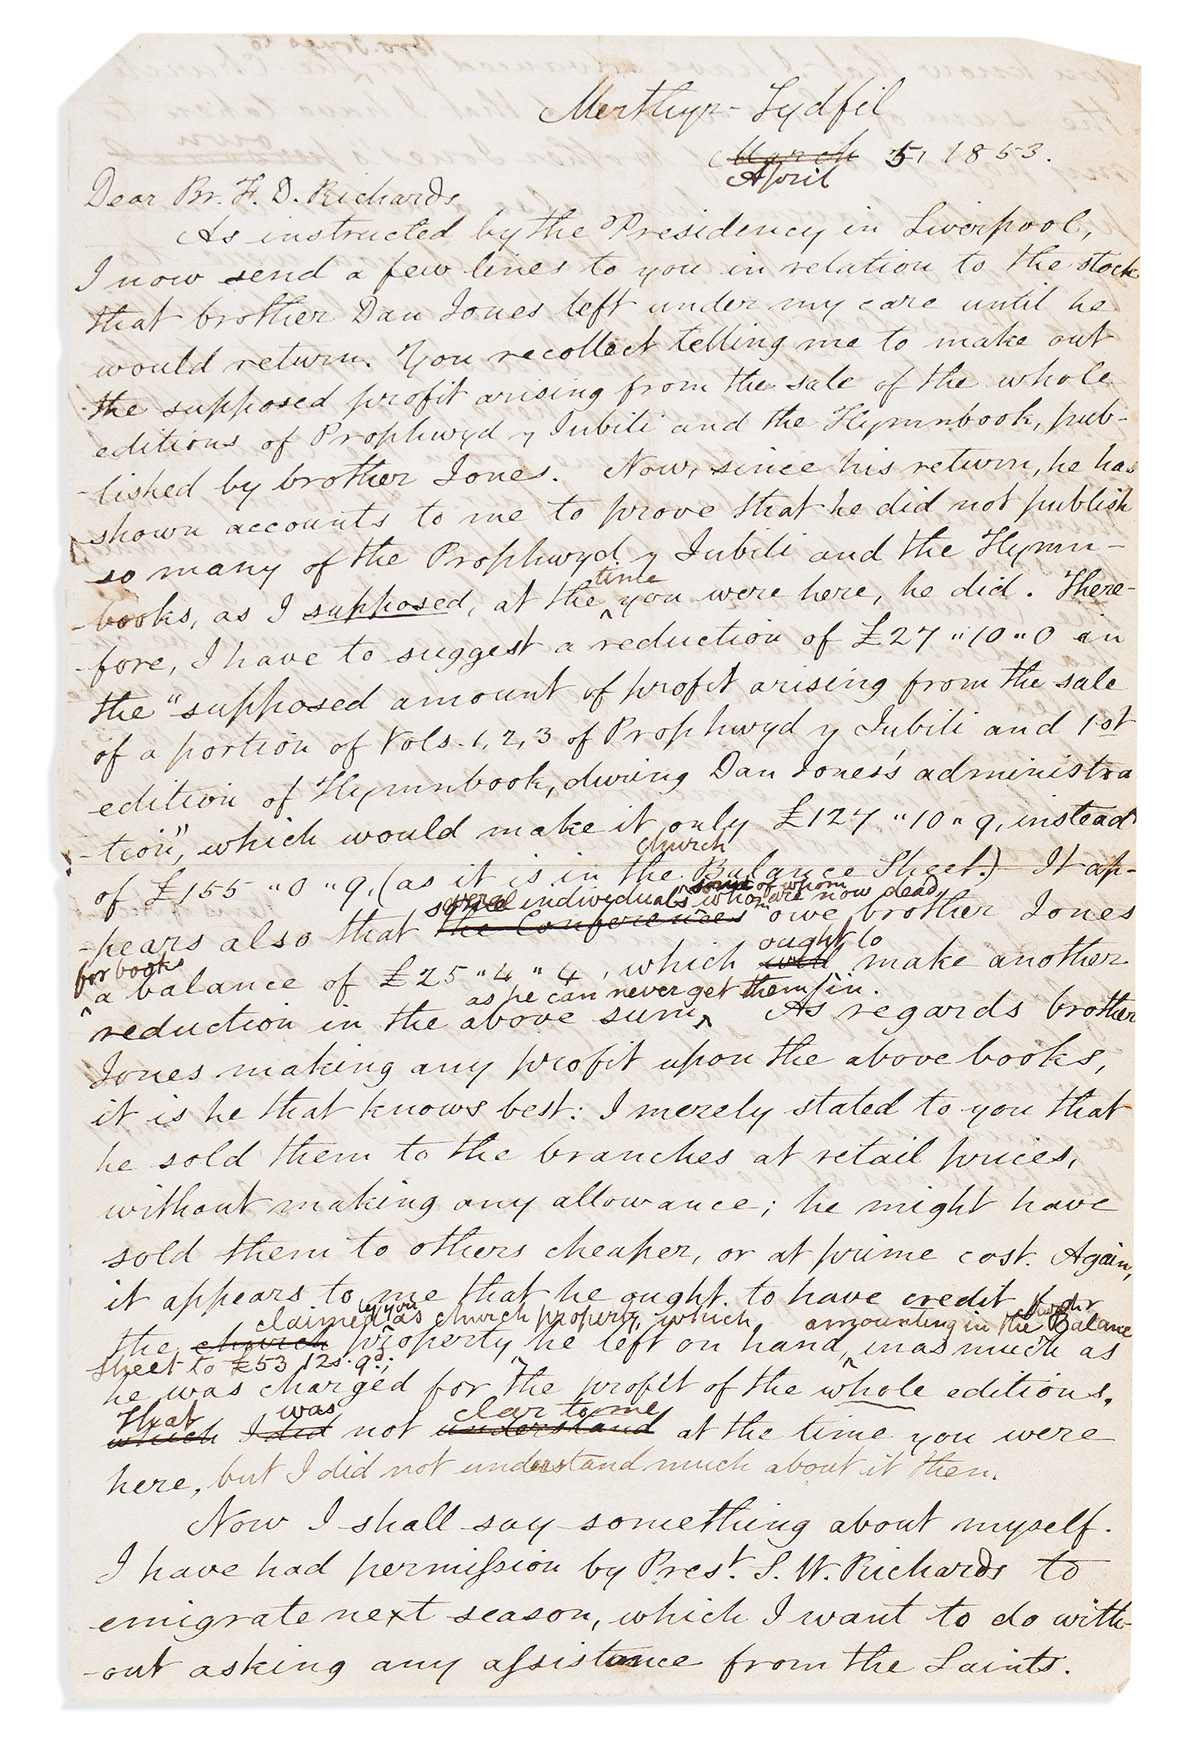 Merthyr-Tydfil
March 5, 1853.
April
Dear Br. F. D. Richards
As instructed by the Presidency in Liverpool,
I now send a few lines to you in relation to the stock
that brother Dan Jones left under my care until he
would return. You recollect telling me to make out
the supposed profit arising from the sale of the whole
editions of Prophwyd y Jubili and the Hymnbook, pub-
-lished by brother Jones. Now, since his return, he has
shown accounts to me to prove that he did not publish
so many of the Prophwyd y Jubili and the Hymn-
time
-books, as I supposed, at the ^ you were here, he did. There-
-fore, I have to suggest a reduction of £27 "10 "0 in
the "supposed amount of profit arising from the sale
of a portion of Vols. 1, 2, 3 of Prophwyd y Jubili and 1st
edition of Hymnbook, during Dan Jones's administra
-tion", which would make it only £127 "10 " 9, instead
church
of £155 "0 "9, (as it is in the Balance Sheet.) It ap-
several individuals some of whom are now dead,
-pears also that the Conferences owe brother Jones
for books ought to
^ a balance of £25 "4 "4, which will make another
as he can never get them in.
reduction in the above sum ^ As regards brother
Jones making any profit upon the above books,
it is he that knows best: I merely stated to you that
he sold them to the branches at retail prices,
without making any allowance; he might have
sold them to others cheaper, or at prime cost. Again,
it appears to me that he ought to have credit for
claimed by you as church property, which amounting in the Balance
the church property he left on hand, inasmuch as
Sheet to £53 12s. 9d;
he was charged for the profit of the whole editions.
That was clear to me
which I did not understand at the time you were
here, but I did not understand much about it then.
Now I shall say something about myself.
I have had permission by Prest. S. W. Richards to
emigrate next season, which I want to do with-
-out asking any assistance from the Saints.